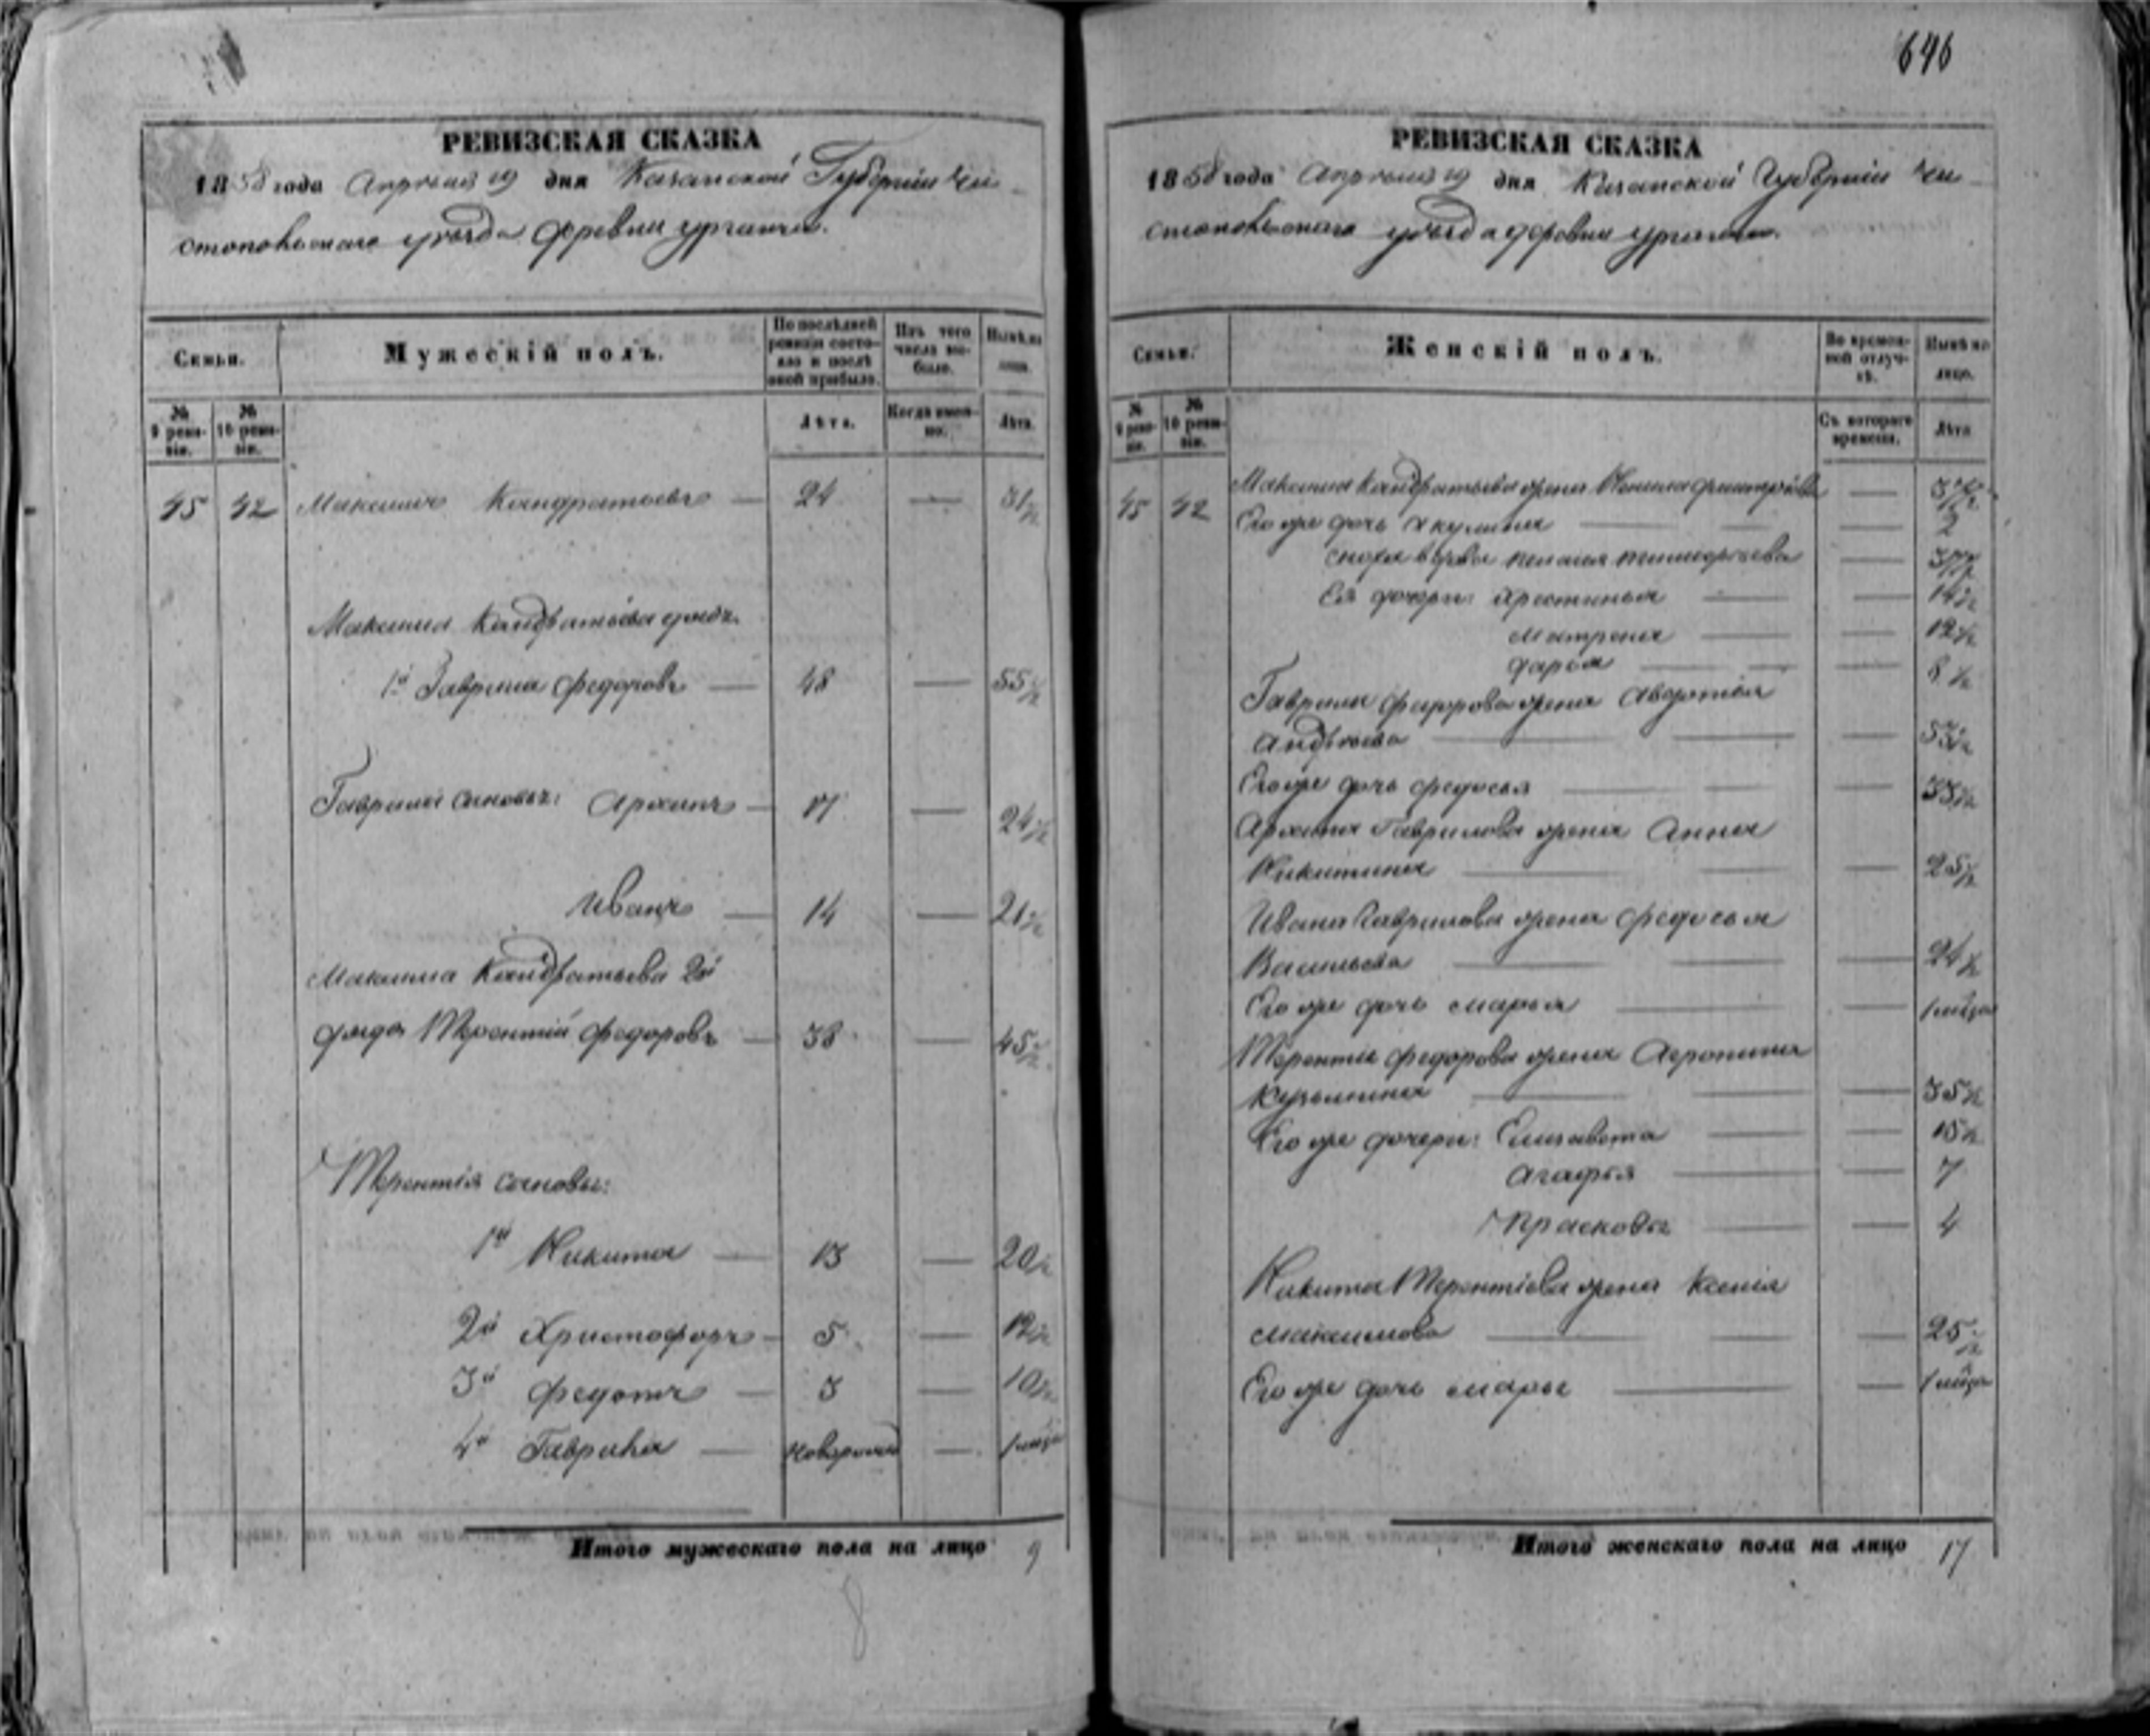 646
РЕВИЗСКАЯ СКАЗКА
1858 года Апреля 19 дня Казанской Губернии Чи-
стопольскаго уезда деревни
Семьи.
Мужескій полъ.
По последней ревизіи состояло и после оной прибыло.
Изъ того числа выбыло.
Ныне на лицо.
№ 9 ревизіи.
№ 10 ревизіи.
Лета.
Когда именно.
Лета.
45 42 Максимъ Кандратьевъ — 24 — 31 1/2
Максима Кандратьева дядя
1й Гаврила Федоровъ — 48 — 55 1/2
Гаврилы сыновья: Архипъ — 17 — 24 1/2
Иванъ — 14 — 21 1/2
Максима Кандратьева 2й
дядя Терентій Федоровъ — 38 — 45 1/2
Терентія сыновья:
1й Никита — 13 — 20 1/2
2й Христофоръ — 5 — 12 1/2
3й Федотъ — 3 — 10 1/2
4й Гаврила — — 1
Итого мужескаго пола на лицо 9
8
РЕВИЗСКАЯ СКАЗКА
1858 года Апреля 19 дня Казанской Губерніи Чи-
стопольскаго уезда деревни
Семьи.
Женскій полъ.
Во временной отлучке.
Ныне на лицо.
№ 9 ревизіи.
№ 10 ревизіи.
Съ котораго времени.
Лета
45 42 Максима Кандратьева жена —
Его же дочь Акулина — 2
Сноха вдова Пелагея —
Ея дочери: Христинья — 14 1/2
Матрена — 12 1/2
Дарья — 8 1/2
Гаврилы Федорова жена Авдотья
Андреева — 53 1/2
Его же дочь Федосья — 33 1/2
Архипа Гаврилова жена Анна
Никитина — 25 1/2
Ивана Гаврилова жена Федосья
Васильева — 24 1/2
Его же дочь Марья — 1
Терентія Федорова жена Агропина
Кузьмина — 35 1/2
Его же дочери: Елизавета — 15 1/2
Агафья — 7
Прасковья — 4
Никита Терентіева жена Ксенія
Максимова — 25 1/2
Его же дочь Марья — 1
Итого женскаго пола на лицо 17